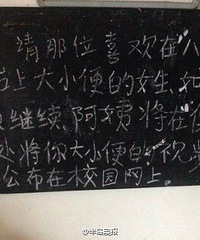 请那位喜欢在
上大小便的女生,如
继续 阿姨将在
处将你大小便的视
公布在校园网上.
@半岛晨报